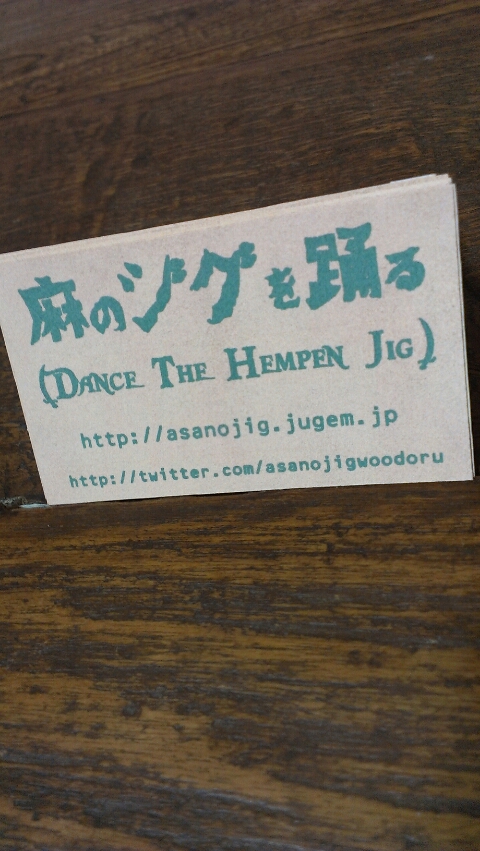 麻のジグを踊る
(DANCE THE HEMPEN JIG)
http://asanojig.jugem.jp
http://twitter.com/asanojigwoodoru